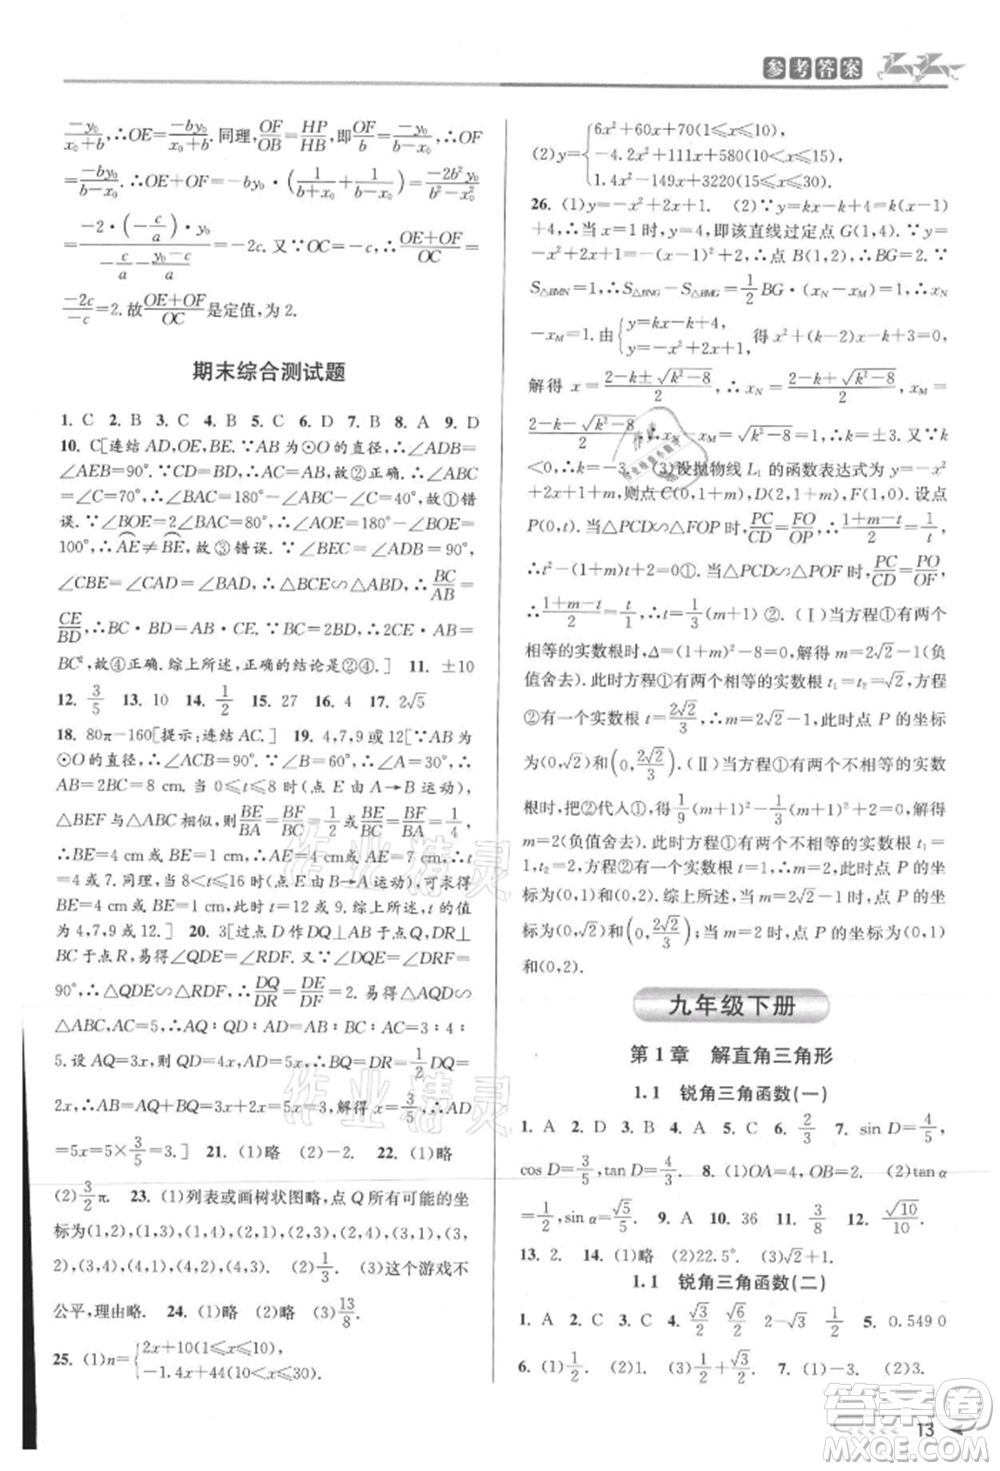 参考答案
$\frac{-by_0}{x_0+b}$,∴OE=$\frac{-by_0}{x_0+b}$.同理,$\frac{OF}{OB}=\frac{HP}{HB}$,即$\frac{OF}{b}=\frac{y_0}{b-x_0}$,∴OF=
$\frac{by_0}{b-x_0}$,∴OE+OF=−by₀·($\frac{1}{b+x_0}+\frac{1}{b-x_0}$)=$\frac{-2b^2y_0}{b^2-x_0^2}$=
$\frac{-2·(-\frac{c}{a})·y_0}{-\frac{c}{a}-\frac{y_0-c}{a}}$=−2c.又∵OC=−c,∴$\frac{OE+OF}{OC}$=
$\frac{-2c}{-c}$=2.故$\frac{OE+OF}{OC}$是定值,为2.
期末综合测试题
1. C 2. B 3. C 4. B 5. C 6. D 7. B 8. A 9. D
10. C[连结AD,OE,BE.∵AB为⊙O的直径,∴∠ADB=
∠AEB=90°.∵AB=AC,∴∠ABC=∠C,BD=CD.
∵∠C=70°,∴∠BAC=180°−2∠C=40°,故①错
误.∵∠BOE=2∠BAC=80°,∴∠AOE=180°−∠BOE=
100°,∴AE≠BE,故③错误.∵∠BEC=∠ADB=90°,
∠CBE=∠CAD=∠BAD,∴△BCE∽△ABD,∴$\frac{BC}{AB}$=
$\frac{CE}{BD}$,∴BC·BD=AB·CE.∵BC=2BD,∴2AB·CE=
BC²,故④正确.综上所述,正确的结论是②④.] 11. ±10
12. $\frac{3}{5}$ 13. 10 14. $\frac{1}{2}$ 15. 27 16. 4 17. 2√5
18. 80π−160[提示:连结AC.] 19. 4,7,9或12[∵AB为
⊙O的直径,∴∠ACB=90°.∵∠B=60°,∴∠A=30°,∴
AB=2BC=8 cm.当0≤t≤8时(点E由A→B运动),若
△BEF与△ABC相似,则$\frac{BE}{BA}=\frac{BF}{BC}=\frac{1}{2}$或$\frac{BE}{BC}=\frac{BF}{BA}=\frac{1}{4}$,
∴BE=4 cm或BE=1 cm,∴AE=4 cm或7 cm,∴t=4
或7.同理,当8<t≤16时(点E由B→A运动),可求得
BE=4 cm或1 cm,∴t=12或9.综上所述,t的值为
4,7,9或12.] 20. 3[过点D作DQ⊥AB于点Q,DR⊥
BC于点R,∴∠QDR=∠EDF=90°,∴∠QDE+∠EDR=
∠EDR+∠RDF,∴∠QDE=∠RDF.又∵∠DQE=∠DRF=
90°,∴△QDE∽△RDF,∴$\frac{DQ}{DR}=\frac{DE}{DF}=\frac{2}{1}$.易得△AQD∽
△ABC,AC=5,∴AQ∶QD∶AD=AB∶BC∶AC=3∶4∶
5.设DQ=4x,则AQ=3x,AD=5x,BQ=DR=$\frac{1}{2}$DQ=
2x,∴AB=AQ+BQ=3x+2x=3,解得x=$\frac{3}{5}$,∴AD
=5x=5×$\frac{3}{5}$=3.] 21. (1)略 (2)略 22. (1)略
(2)$\frac{3}{2}$π. 23. (1)列表或画树状图略,点Q所有可能的坐
标为(1,1),(1,2),(1,3),(2,1),(2,2),(2,3),(3,1),(3,
2),(3,3). (2)$\frac{1}{3}$. (3)这个游戏不
公平,理由略. 24. (1)略 (2)略 (3)$\frac{13}{8}$.
25. (1)n={2x+10(1≤x≤10), −1.4x+44(10≤x≤30).
(2)y={6x²+60x+70(1≤x≤10), −x²+111x+580(10≤x≤15), 1.4x²−149x+3220(15≤x≤30).
26. (1)y=−x²+2x+1. (2)∵y=kx−k+4=k(x−1)
+4,∴当x=1时,y=4,即该直线过定点G(1,4).∵y=
−x²+2x+1=−(x−1)²+2,∴点B(1,2),∴BG=2.∵
S△BMN=1,∴S△BNG−S△BMG=$\frac{1}{2}$BG·(xN−xM)=1,∴xN
−xM=1.由{y=kx−k+4, y=−x²+2x+1,得x²+(k−2)x−k+3=0,
解得x=$\frac{2-k±\sqrt{k^2-8}}{2}$,∴xN=$\frac{2-k+\sqrt{k^2-8}}{2}$,xM=
$\frac{2-k-\sqrt{k^2-8}}{2}$,∴xN−xM=√(k²−8)=1,∴k=±3.又∵
k<0,∴k=−3. (3)设抛物线L₁的函数表达式为y=−x²+
2x+1+m,则点C(0,1+m),D(2,1+m),F(1,0).设点
P(0,t).当△PCD∽△FOP时,$\frac{PC}{CD}=\frac{FO}{OP}$,∴$\frac{1+m-t}{2}=\frac{1}{t}$,
∴t²−(1+m)t+2=0①;当△PCD∽△POF时,$\frac{PC}{CD}=\frac{PO}{OF}$,
∴$\frac{1+m-t}{2}=\frac{t}{1}$,∴t=$\frac{1}{3}$(m+1)②.(Ⅰ)当方程①有两个
相等的实数根时,Δ=(1+m)²−8=0,解得m=2√2−1(负
值舍去),此时方程①有两个相等的实数根t₁=t₂=√2,方程
②有一个实数根t=$\frac{2\sqrt{2}}{3}$,∴m=2√2−1,此时点P的坐标
为(0,√2)和(0,$\frac{2\sqrt{2}}{3}$).(Ⅱ)当方程①有两个不相等的实数
根时,把②代入①,得$\frac{1}{9}$(m+1)²−$\frac{1}{3}$(m+1)²+2=0,解得
m=2(负值舍去).此时方程①有两个不相等的实数根t₁=
1,t₂=2,方程②有一个实数根t=1,∴m=2,此时点P的坐
标为(0,1)和(0,2).综上所述,当m=2√2−1时,点P的坐标
为(0,√2)和(0,$\frac{2\sqrt{2}}{3}$);当m=2时,点P的坐标为(0,1)
和(0,2).
九年级下册
第1章 解直角三角形
1.1 锐角三角函数(一)
1. A 2. D 3. B 4. A 5. A 6. $\frac{2}{3}$ 7. sin D=$\frac{4}{5}$,
cos D=$\frac{3}{5}$,tan D=$\frac{4}{3}$. 8. (1)OA=4,OB=2. (2)tan α=
$\frac{1}{2}$,sin α=$\frac{\sqrt{5}}{5}$. 9. A 10. 36 11. $\frac{3}{8}$ 12. $\frac{\sqrt{10}}{10}$.
13. 2. 14. (1)略 (2)22.5°. (3)√2+1.
1.1 锐角三角函数(二)
1. A 2. C 3. C 4. $\frac{\sqrt{3}}{2}$ $\frac{\sqrt{6}}{2}$ 2−√3 $\frac{1}{2}$ 5. 0.549 0
6. (1)$\frac{1}{2}$. (2)$\frac{1}{4}$. (3)1−$\frac{\sqrt{2}}{2}$. 7. (1)3. (2)3.
13
作业精灵
作业精灵
答案圈
MXQE.COM